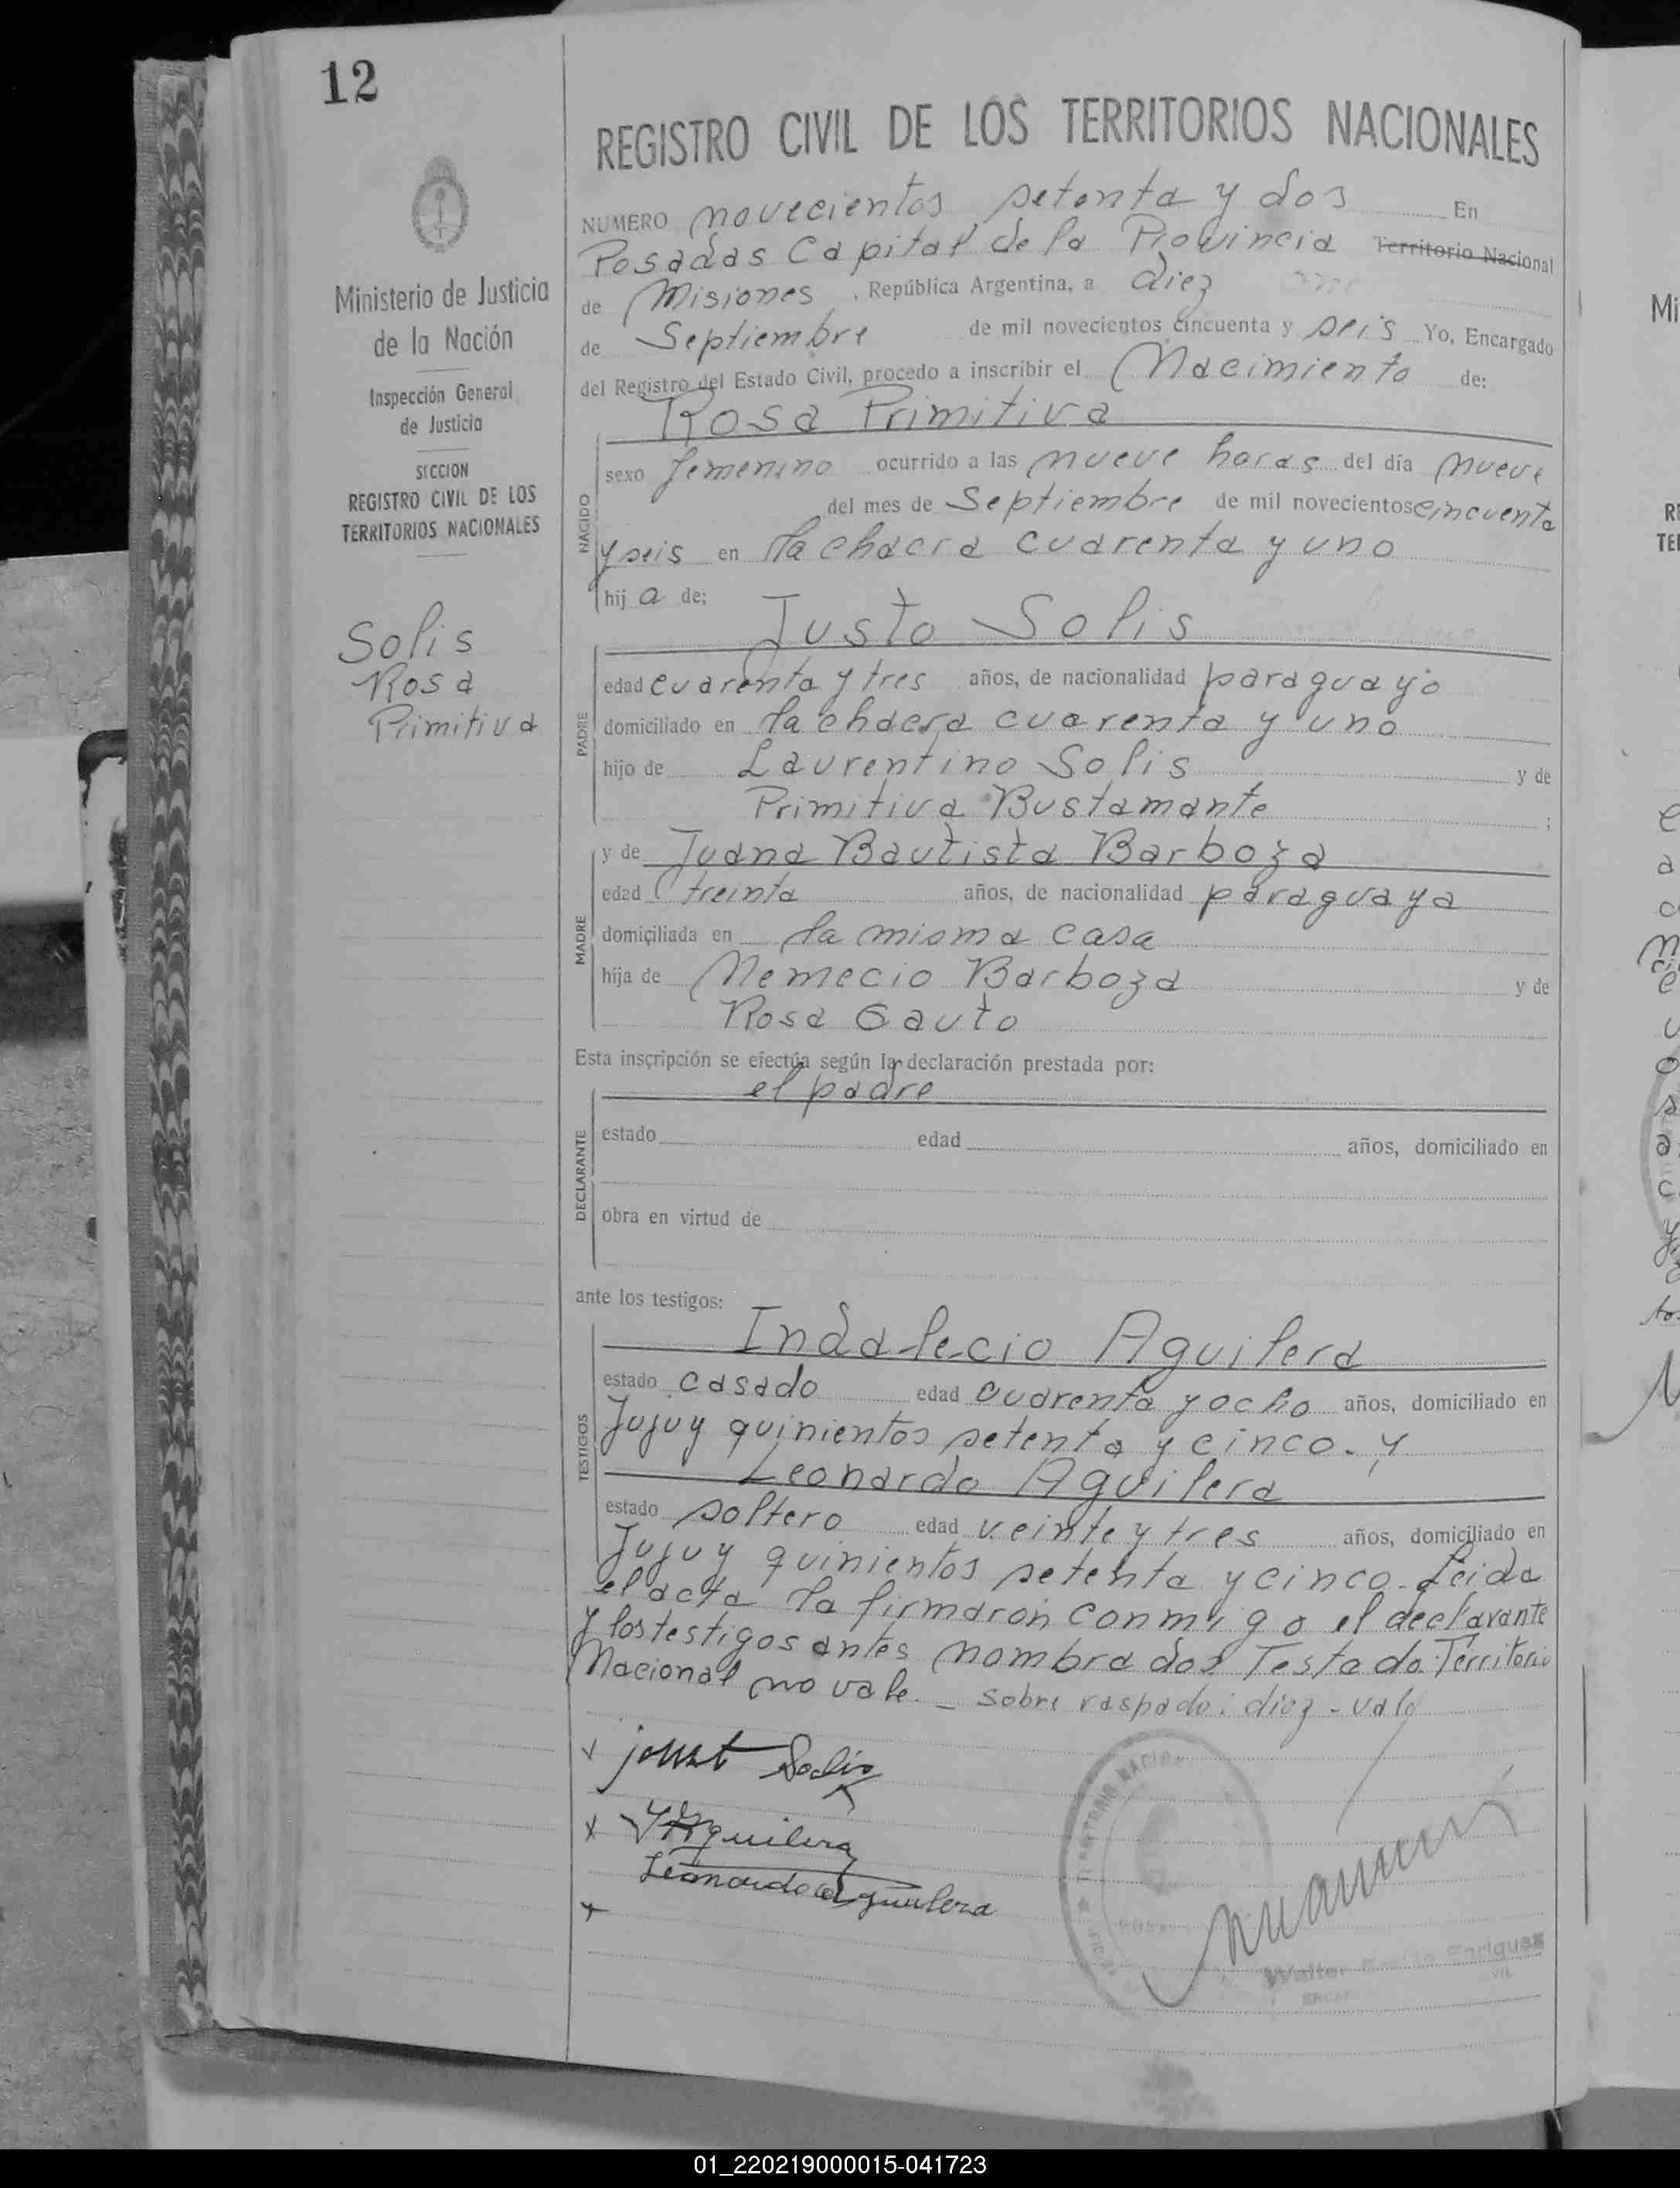 12
Ministerio de Justicia
de la Nación
Inspección General
de Justicia
SECCION
REGISTRO CIVIL DE LOS
TERRITORIOS NACIONALES
Solis
Rosa
Primitiva
REGISTRO CIVIL DE LOS TERRITORIOS NACIONALES
NUMERO novecientos setenta y dos En
Posadas Capital de la Provincia Territorio Nacional
de Misiones , República Argentina, a diez
de Septiembre de mil novecientos cincuenta y seis Yo, Encargado
del Registro del Estado Civil, procedo a inscribir el Nacimiento de:
Rosa Primitiva
NACIDO
sexo femenino ocurrido a las nueve horas del día nueve
del mes de Septiembre de mil novecientos cincuenta
y seis en la chacra cuarenta y uno
hij a de;
Justo Solis
PADRE
edad cuarenta y tres años, de nacionalidad paraguayo
domiciliado en la chacra cuarenta y uno
hijo de Laurentino Solis y de
Primitiva Bustamante ;
MADRE
y de Juana Bautista Barboza
edad treinta años, de nacionalidad paraguaya
domiciliada en la misma casa
hija de Nemecio Barboza y de
Rosa Gauto
Esta inscripción se efectúa según la declaración prestada por:
el padre
DECLARANTE
estado edad años, domiciliado en
obra en virtud de
ante los testigos:
Indalecio Aguilera
TESTIGOS
estado casado edad cuarenta y ocho años, domiciliado en
Jujuy quinientos setenta y cinco. y
Leonardo Aguilera
estado soltero edad veinte y tres años, domiciliado en
Jujuy quinientos setenta y cinco. Leida
el acta la firmaron conmigo el declarante
y los testigos antes nombrados Testado: Territorio
Nacional no vale. - sobre raspado: diez - vale
x Solis
x Aguilera
Leonardo Aguilera
x
Walter Enriquez
01_220219000015-041723